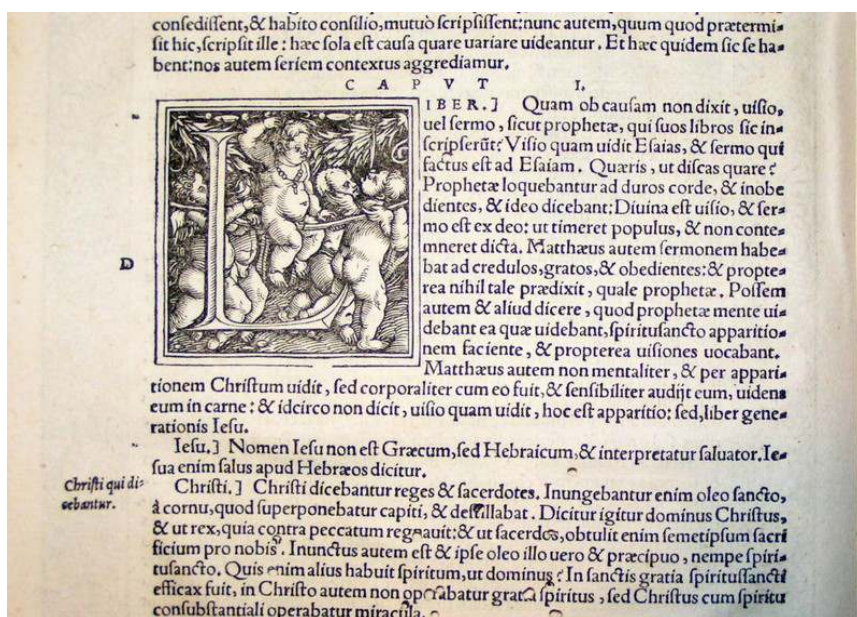 confediſſent, & habito conſilio, mutuò ſcripſiſſent: nunc autem, quum quod prætermi-
ſit hic, ſcripſit ille: hæc ſola eſt cauſa quare uariare uideantur. Et hæc quidem ſic ſe ha-
bent: nos autem ſeriem contextus aggrediamur.
CAPVT I.
LIBER.] Quam ob cauſam non dixit, uiſio,
uel ſermo, ſicut prophetæ, qui ſuos libros ſic in-
ſcripſerũt? Viſio quam uidit Eſaias, & ſermo qui
factus eſt ad Eſaiam. Quæris, ut diſcas quare?
Prophetæ loquebantur ad duros corde, & inobe
dientes, & ideo dicebant: Diuina eſt uiſio, & ſer-
mo eſt ex deo: ut timeret populus, & non conte-
mneret dicta. Matthæus autem ſermonem habe-
D
bat ad credulos, gratos, & obedientes: & propte-
rea nihil tale prædixit, quale prophetæ. Poſſem
autem & aliud dicere, quod prophetæ mente ui-
debant ea quæ uidebant, ſpirituſancto apparitio-
nem faciente, & propterea uiſiones uocabant.
Matthæus autem non mentaliter, & per appari-
tionem Chriſtum uidit, ſed corporaliter cum eo fuit, & ſenſibiliter audijt eum, uidens
eum in carne: & idcirco non dicit, uiſio quam uidit, hoc eſt apparitio: ſed, liber gene-
rationis Ieſu.
Ieſu.] Nomen Ieſu non eſt Græcum, ſed Hebraicum, & interpretatur ſaluator. Ie-
ſua enim ſalus apud Hebræos dicitur.
Chriſti qui di-
cebantur.
Chriſti.] Chriſti dicebantur reges & ſacerdotes. Inungebantur enim oleo ſancto,
à cornu, quod ſuperponebatur capiti, & deſtillabat. Dicitur igitur dominus Chriſtus,
& ut rex, quia contra peccatum regnauit: & ut ſacerdos, obtulit enim ſemetipſum ſacri
ficium pro nobis. Inunctus autem eſt & ipſe oleo illo uero & præcipuo, nempe ſpiri-
tuſancto. Quis enim alius habuit ſpiritum, ut dominus? In ſanctis gratia ſpirituſſancti
efficax fuit, in Chriſto autem non operabatur gratia ſpiritus, ſed Chriſtus cum ſpiritu
conſubſtantiali operabatur miracula.